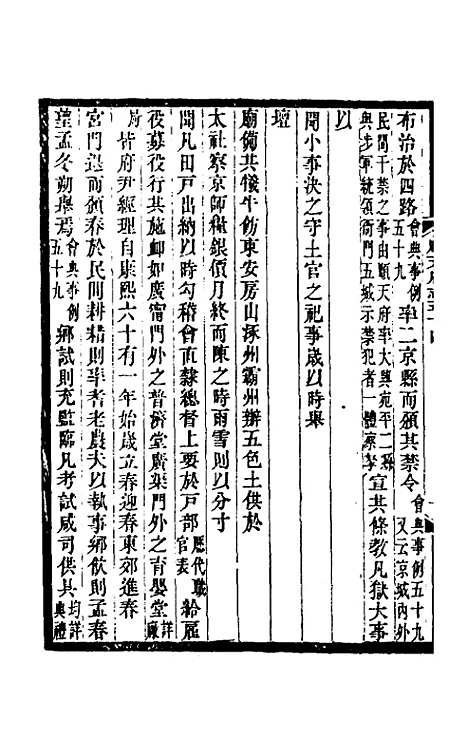 布治於四路會典事例五十九率二京縣而頒其禁令會典事例五十九又云京城內外
民間干禁之事由順天府率大興宛平二縣與步軍統領衙門五城示禁犯者一體察拏宣其條教凡獄大事
以
聞小事決之守土官之祀事歲以時舉
壇
廟備共犧牛飭東安房山涿州霸州辦五色土供於
太社察京師糧銀價月終而陳之時雨雪則以分寸
聞凡田戶出納以時勾稽會直隸總督上要於戶部歷代職官表給雇
役募役行共施卹如廣甯門外之普濟堂廣渠門外之育嬰堂詳廠
皆府尹經理自康熙六十有一年始歲立春迎春東郊進春
宮門退而頒春於民間耕耤則率耆老農夫以執事鄉飲則孟春
孟冬勸舉焉會典事例五十九鄉試則充監臨凡考試咸司供具均詳典禮